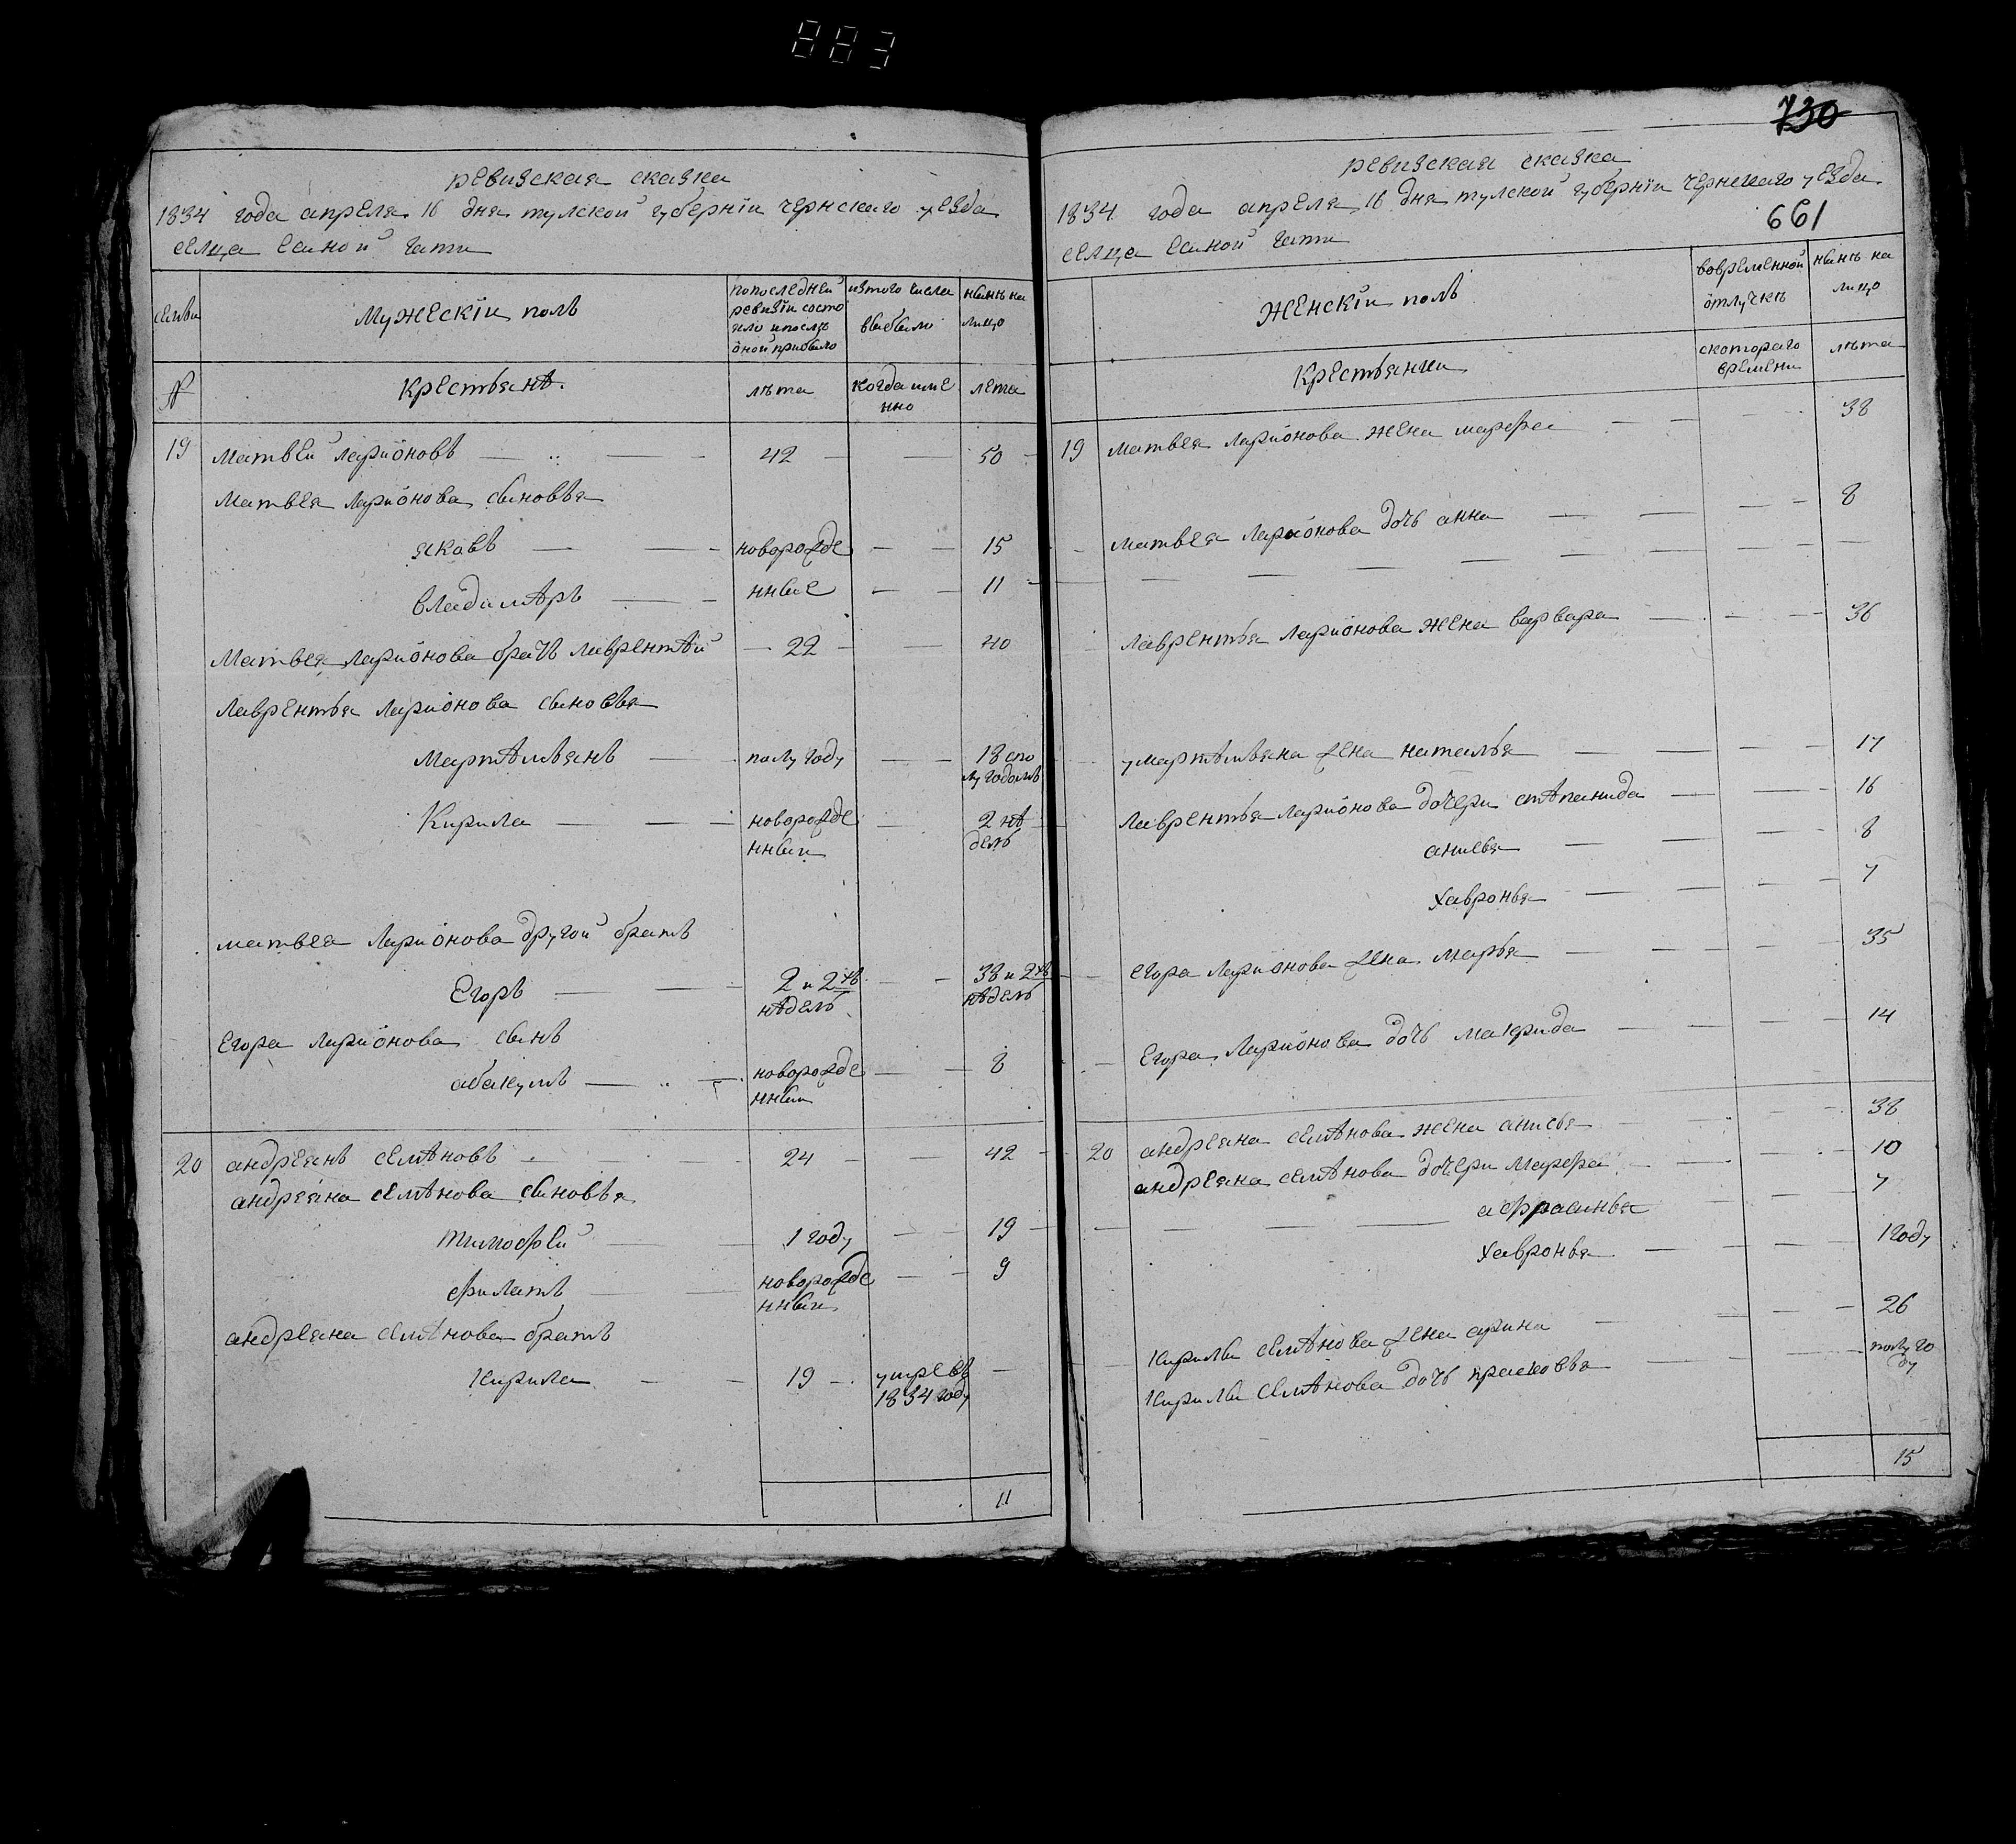 883
ревизская сказка
1834 года апреля 16 дня тулской губернїи чернскаго уезда
селца

семьи
мужескїи полъ
попоследней ревизїи состояло ипослѣ оной прибыло
изтого числа выбыло
нынѣ на лицо
№
крестьянѣ.
лѣта
когда именно
лета
19 Матвей Ларионовъ 42 50
Матвея Ларионова сыновья
яковъ новорожде 15
владимѣръ нные 11
Матвея Ларионова братъ лаврентѣй 22 40
лаврентья Ларионова сыновья
Мартѣмьянъ полугоду 18 спо
лугодомъ
Кирила новорожде 2 нѣ
нныи дель
матвея Ларионова другой братъ
Егоръ
Егора Ларионова сынъ
абакумъ новорожде 8
нныи
20 андреянъ семѣновъ 24 42
андреяна семѣнова сыновья
тимофей 1 году 19
филатъ новорожде 9
нныи
андреяна семѣнова братъ
кирила 19 умре въ
1834 году
11
730
ревизская сказка
1834 года апреля 16 дня тулской губернїи чернскаго уезда
661
селца
женскїи полъ
вовременной отлучкѣ
нынѣ на лицо
крестьянки
скотораго времени
лѣта
19 матвея Ларионова жена марфа 38
матвея Ларионова дочь анна 8
лаврентья Ларионова жена варвара 36
умартѣмьяна жена наталья 17
лаврентья Ларионова дочери стѣпанида 16
анисья 8
хавронья 7
егора Ларионова жена марья 35
Егора Ларионова дочь макрида 14
20 андреяна семѣнова жена анисья 38
андреяна семѣнова дочери марфа 10
афрасинья 7
хавронья 1 году
кирилы семѣнова жена арина 26
кирилы семѣнова дочь прасковья полуго
ду
15